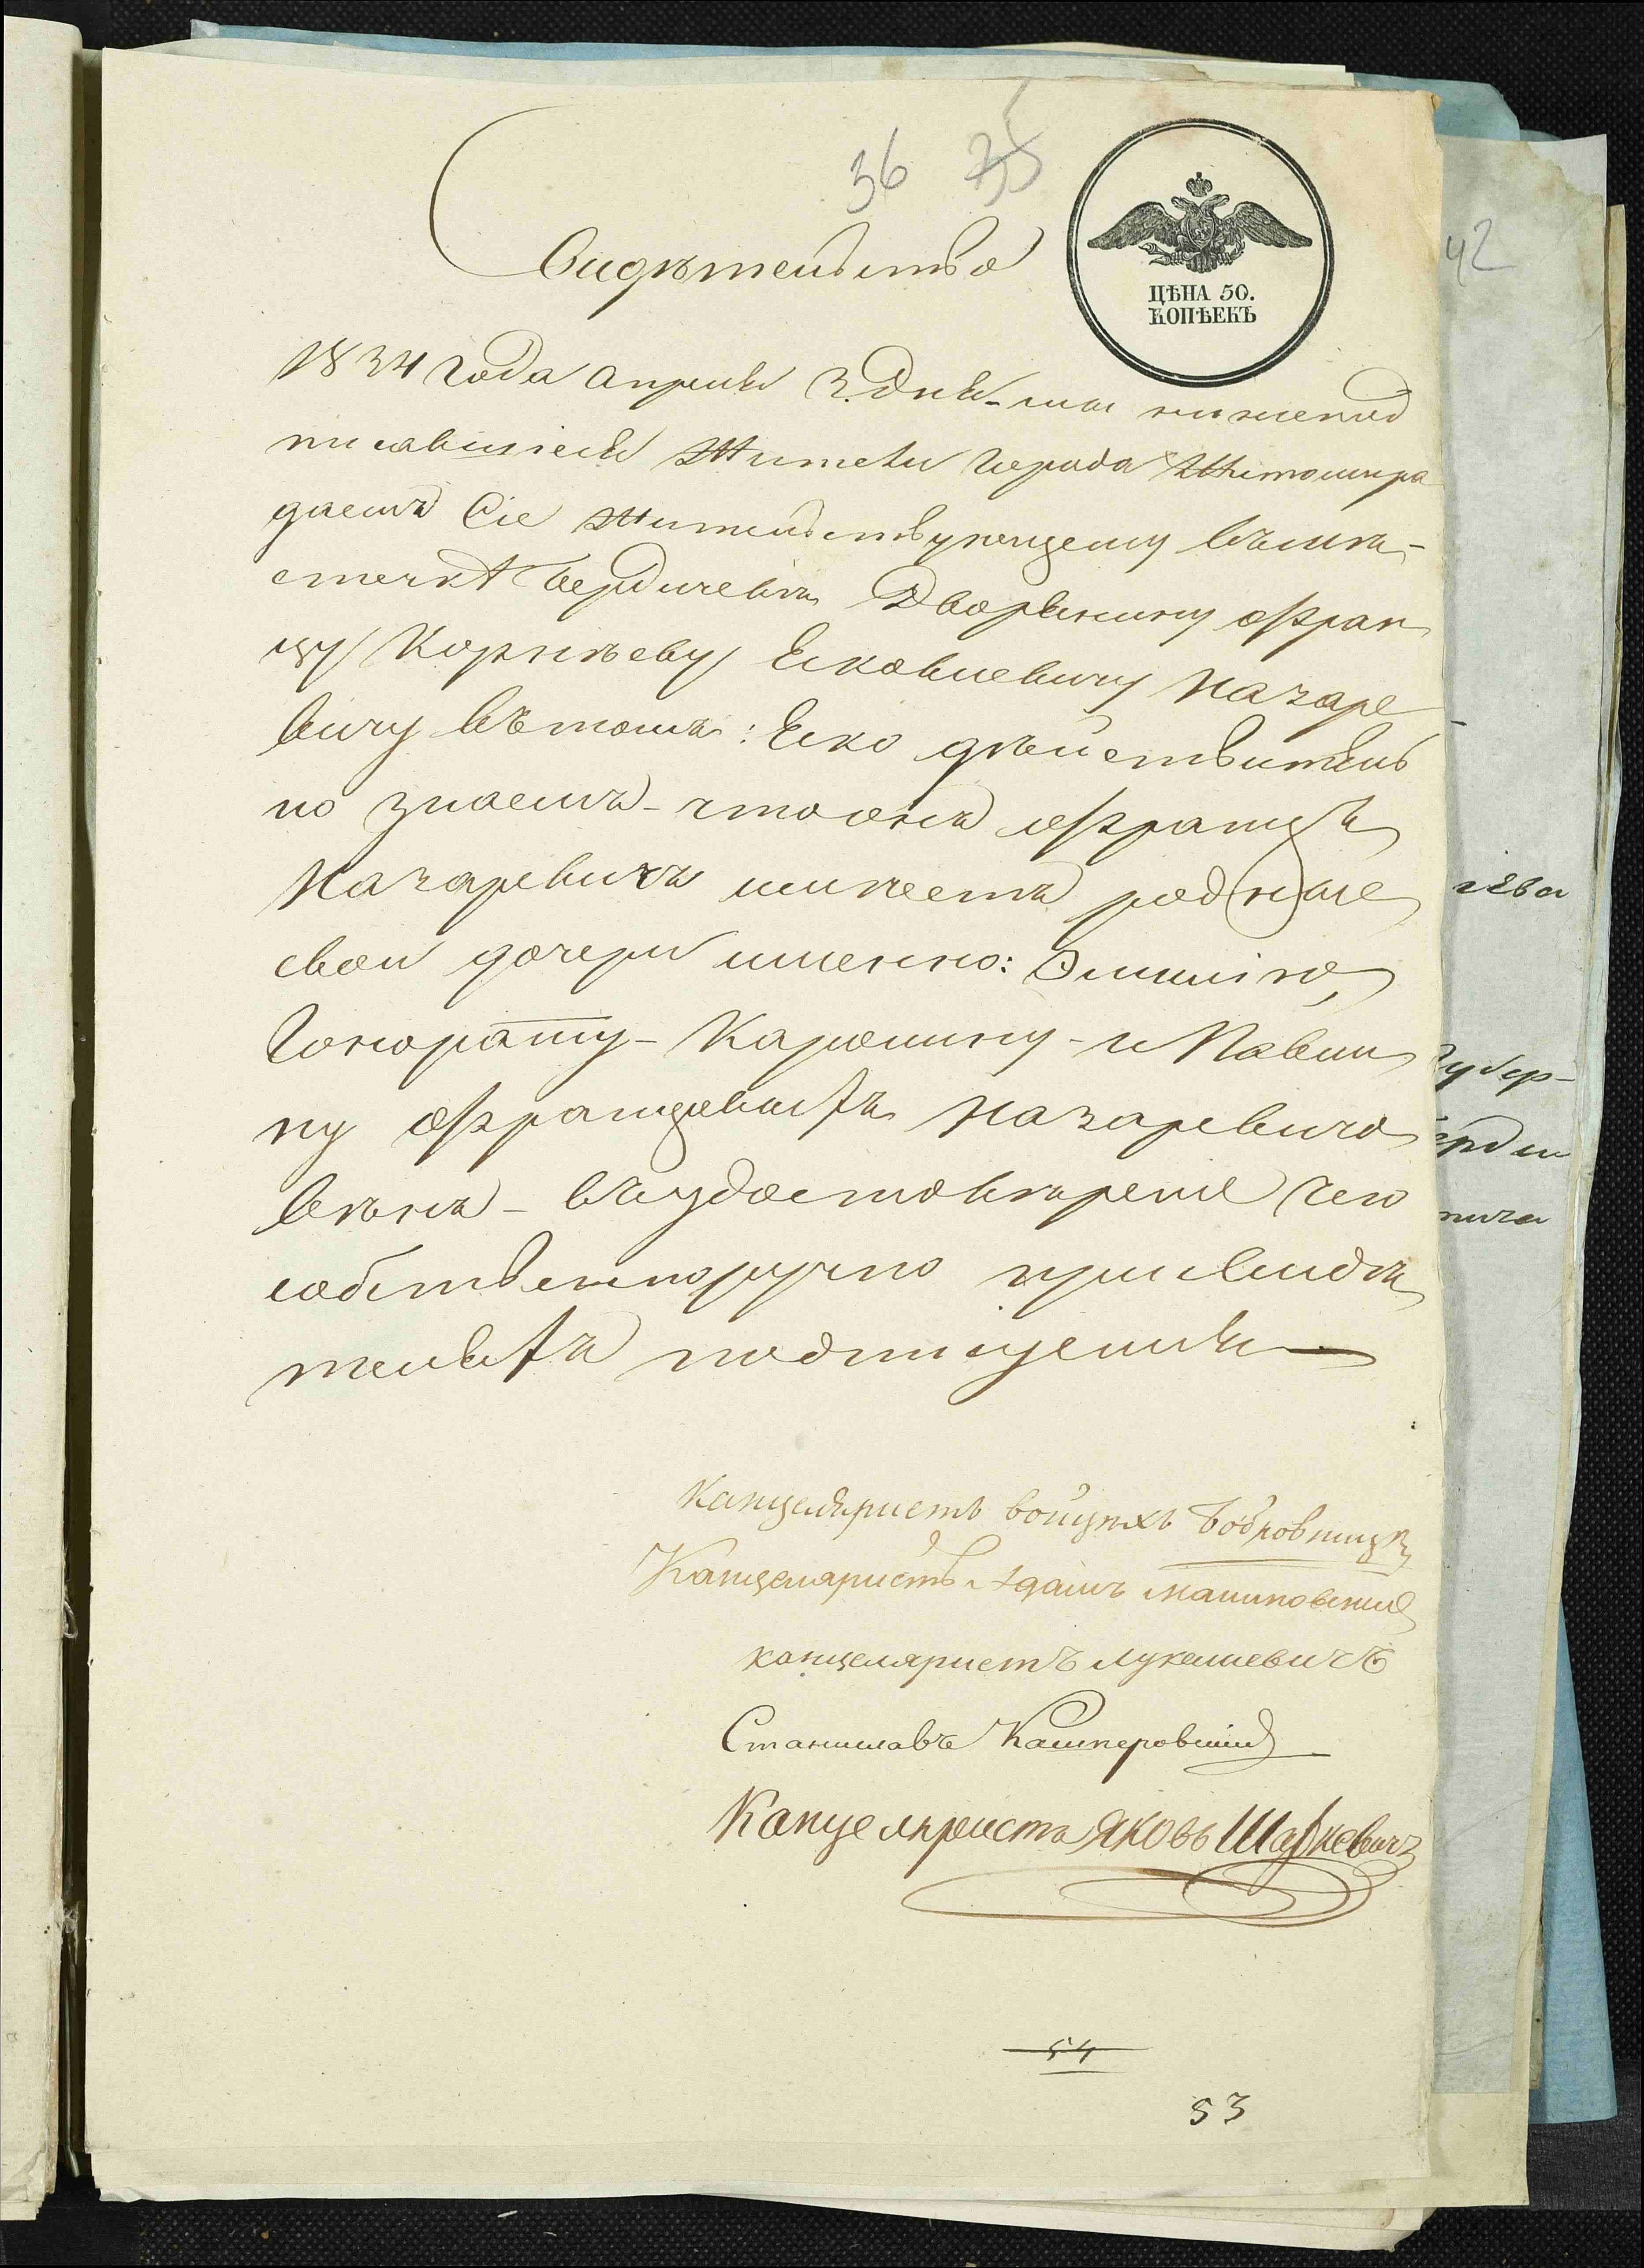 36 35
ЦѢНА 50.
КОПѢЕКЪ
Свидѣтельство
1834 года апреля 3 дня - мы нижепод
писавшіеся Жители города Житомира
даемъ Сіе Жительствующему въ мѣ-
стечкѣ Бердичевѣ Дворянину Фран
цу Корнѣеву Яковлевичу Назаре
вичу въ томъ: Яко дѣйствитель
но знаемъ - что онъ Францъ
Назаревичъ имѣетъ родные
свои дочери именно: Эмилію,
Гонорату - Каролину - и Павли
ну Францовыхъ Назаревичо
вѣнъ - въ удостовѣреніе чего
собственноручно при свидѣ
теляхъ подписуемся
Канцеляристъ Войцѣхъ Бобровницкі
Канцеляристъ Адамъ Малиновскій
канцеляристъ Лукашевичъ
Станиславъ Кашперовскій
Канцеляристъ Яковъ Шаркевичъ
54
53
42
Губер-